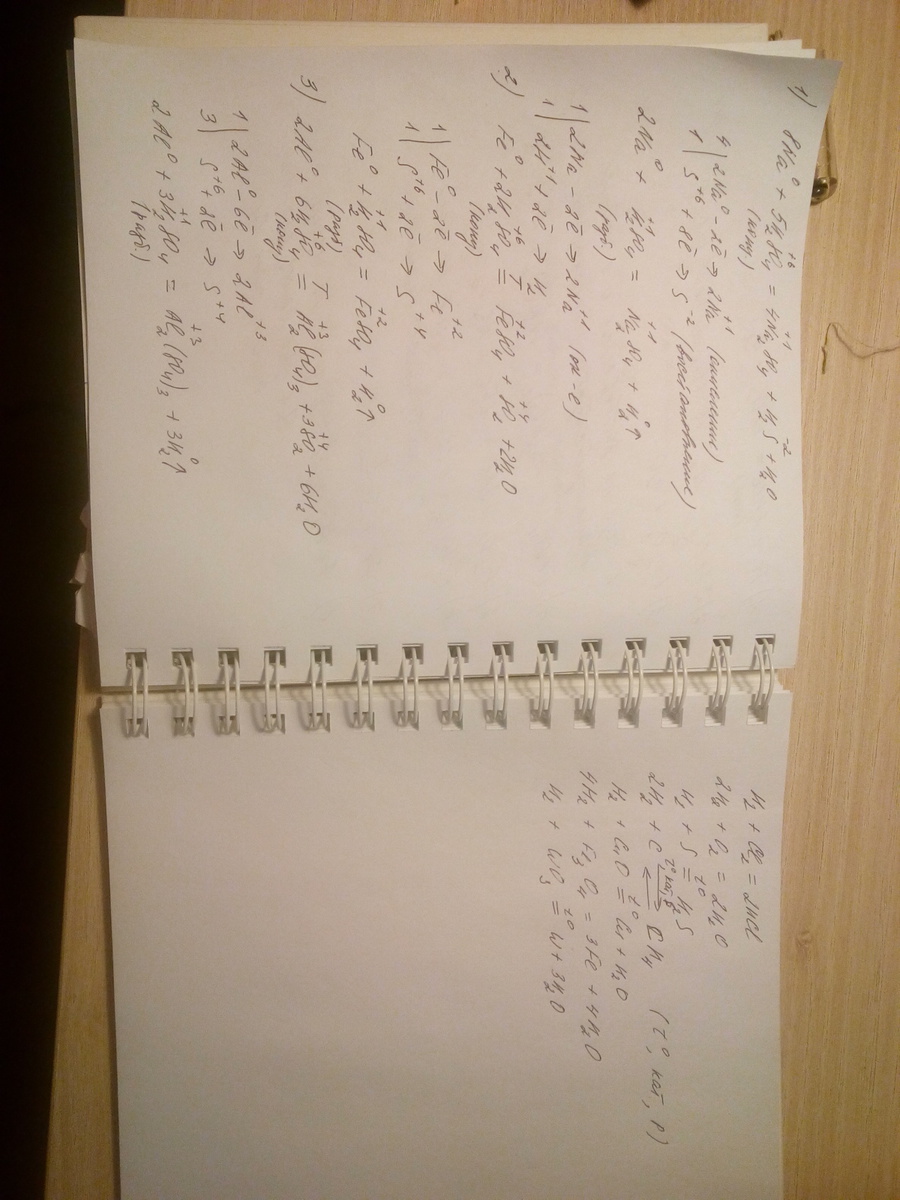 1) 8Na⁰ + 5H₂S⁺⁶O₄ = 4Na₂⁺¹SO₄ + H₂S⁻² + H₂O
(конц.)
4 | 2Na⁰ - 2ē → 2Na⁺¹ (окисление)
1 | S⁺⁶ + 8ē → S⁻² (восстановление)
2Na⁰ + H₂⁺¹SO₄ = Na₂⁺¹SO₄ + H₂⁰↑
(разб)
1 | 2Na - 2ē → 2Na⁺¹ (ок-е)
1 | 2H⁺¹ + 2ē → H₂
2) Fe⁰ + 2H₂S⁺⁶O₄ =ᵀ Fe⁺²SO₄ + S⁺⁴O₂ + 2H₂O
(конц)
1 | Fe⁰ - 2ē → Fe⁺²
1 | S⁺⁶ + 2ē → S⁺⁴
Fe⁰ + H₂⁺¹SO₄ = Fe⁺²SO₄ + H₂⁰↑
(разб)
3) 2Al⁰ + 6H₂S⁺⁶O₄ =ᵀ Al₂⁺³(SO₄)₃ + 3S⁺⁴O₂ + 6H₂O
(конц)
1 | 2Al⁰ - 6ē → 2Al⁺³
3 | S⁺⁶ + 2ē → S⁺⁴
2Al⁰ + 3H₂⁺¹SO₄ = Al₂⁺³(SO₄)₃ + 3H₂⁰↑
(разб)
H₂ + Cl₂ = 2HCl
2H₂ + O₂ = 2H₂O
H₂ + S =ᵗ⁰ H₂S
2H₂ + C ⇄ CH₄ (T⁰, кат, P)
H₂ + CuO =ᵗ⁰ Cu + H₂O
4H₂ + Fe₃O₄ = 3Fe + 4H₂O
H₂ + WO₃ =ᵗ⁰ W + 3H₂O